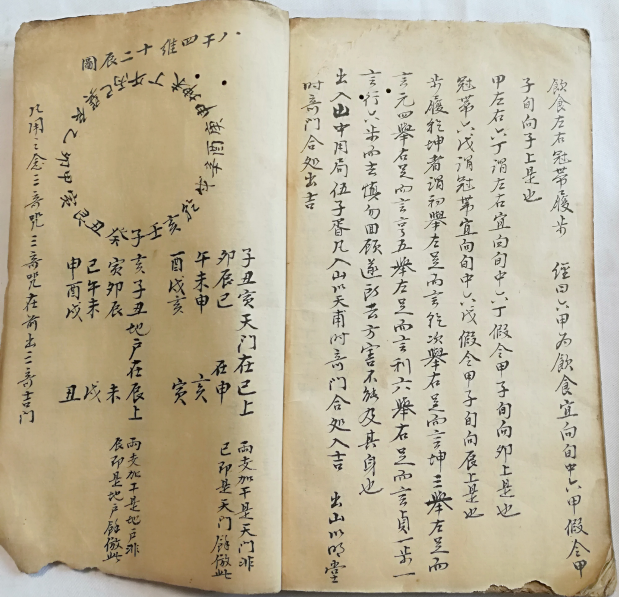 飲食左右冠帶履步　經曰六甲為飲食宜向旬中六甲假令甲
子旬向子上是也
甲左右六丁謂左右宜向旬中六丁假令甲子旬向卯上是也
冠帶六戊謂冠帶宜向旬中六戊假令甲子旬向辰上是也
步履乾坤者謂初舉左足而言乾次舉右足而言坤三舉左足而
言元四舉右足而言亨五舉左足而言利六舉右足而言貞一步一
言行六步而去慎勿回顧遂所去方害不能及其身也
出入山中用局伍子胥凡入山以天甫時奇門合処入吉　出山以明堂
時奇門合処出吉
八干四維十二辰圖
子壬亥乾戌辛酉庚申坤未丁午丙巳巽辰乙卯甲寅艮丑癸
子丑寅天門在巳上
卯辰巳　在申
午未申　亥
酉戌亥　寅
兩支加干是天門非
巳即是天門餘倣此
亥子丑地戶在辰上
寅卯辰　未
巳午未　戌
申酉戌　丑
兩支加干是地戶非
辰即是地戶餘倣此
念三奇咒三奇咒在前出三奇吉門